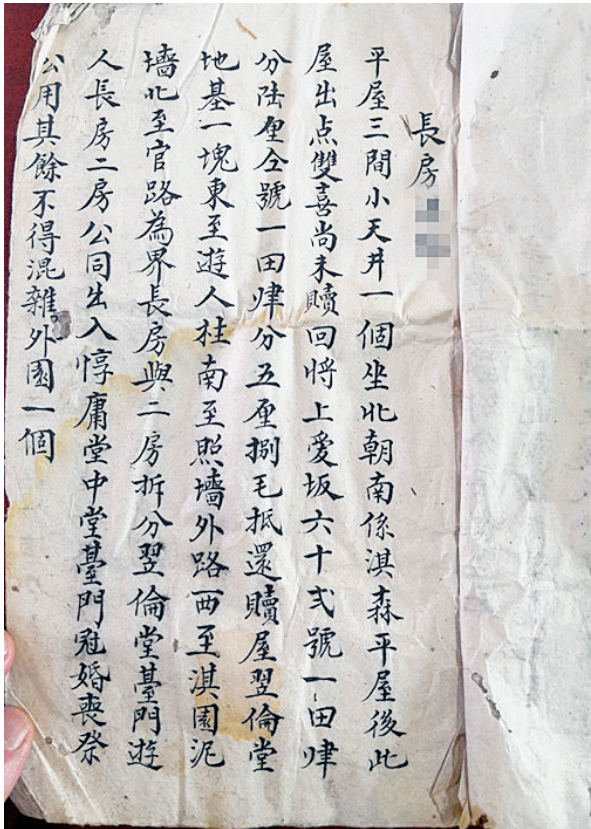 長房
平屋三間小天井一個坐北朝南係淇森平屋後此
屋出点雙喜尚未贖回將上爱坂六十弍號一田肆
分陆厘仝號一田肆分五厘捌毛抵還贖屋翌倫堂
地基一塊東至遊人拄南至照墻外路西至淇園泥
墻北至官路為界長房與二房拆分翌倫堂臺門遊
人長房二房公同出入惇庸堂中堂臺門冠婚喪祭
公用其餘不得混雜外園一個